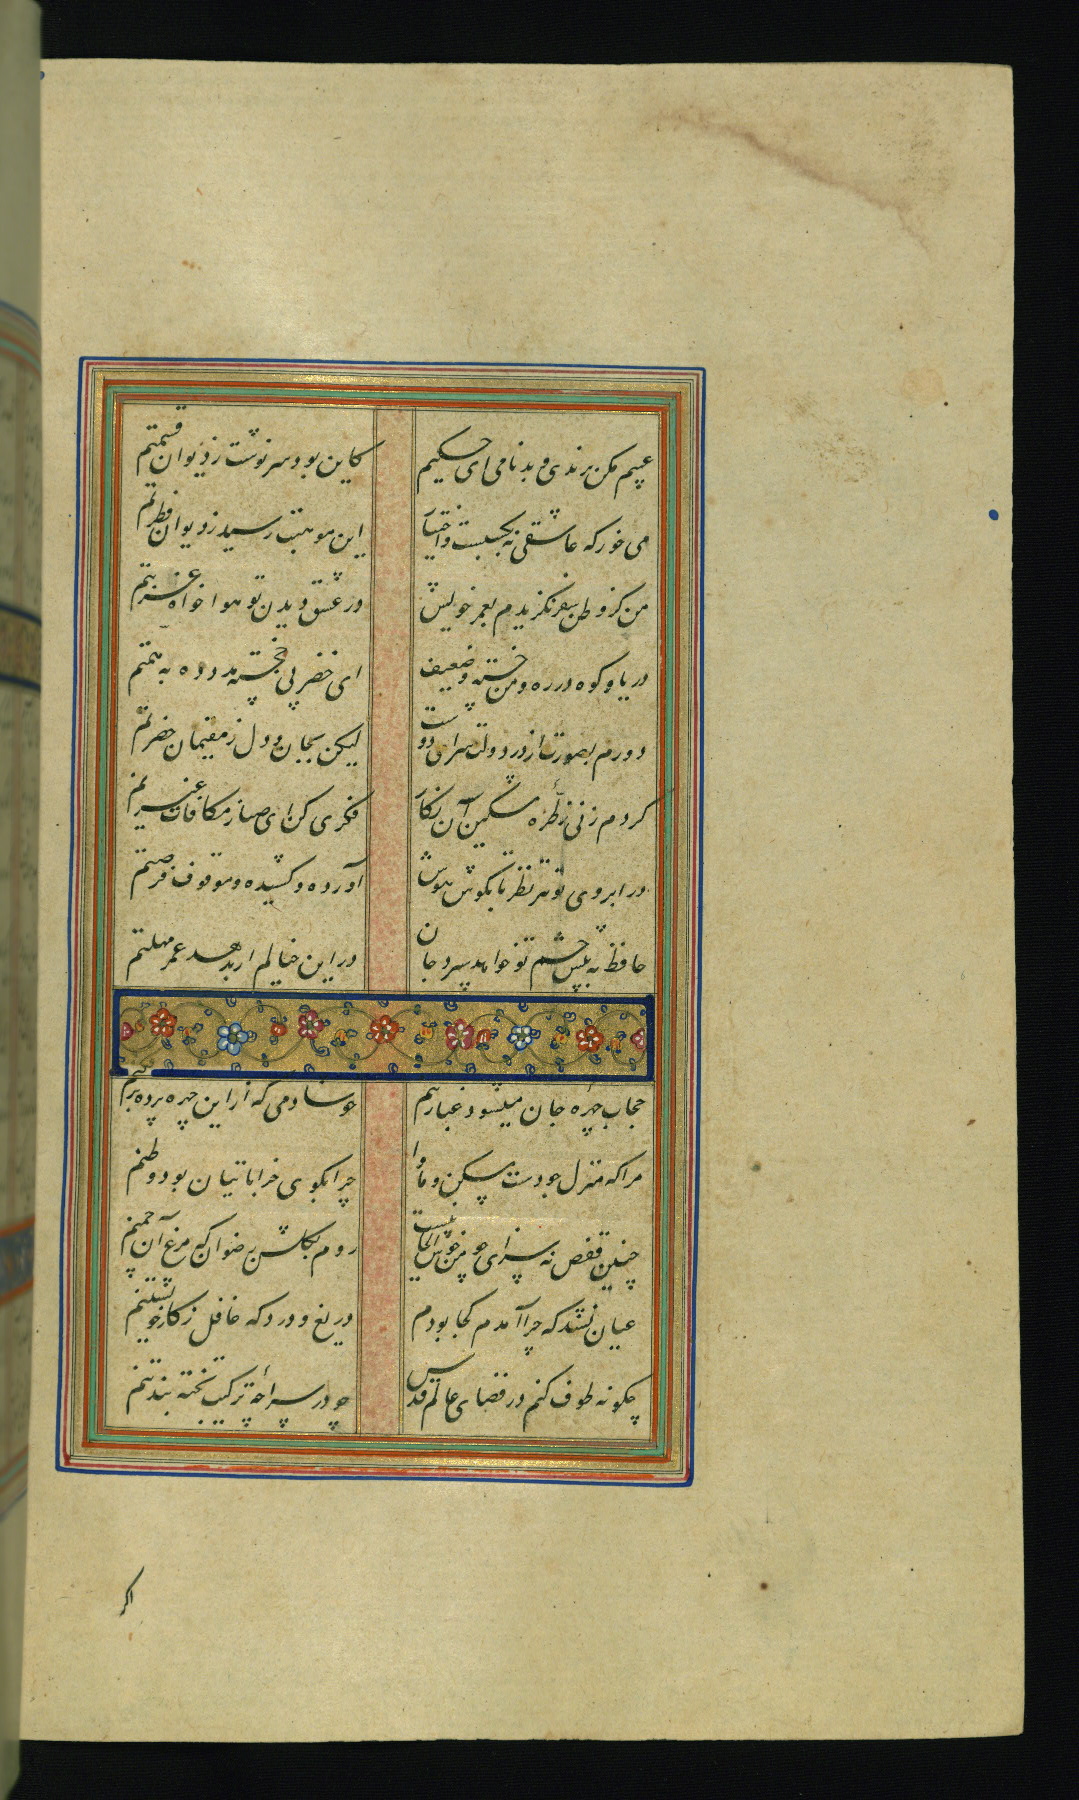 عیبم مکن برندی و بدنامی ای حکیم کاین بود سرنوشت ز دیوان قسمتم
می خور که عاشقی نه بکسبست و اختیار این موهبت رسید ز دیوان فطرتم
من کز وطن سفر نگزیدم بعمر خویش در عشق دیدن تو هواخواه غربتم
دریا و کوه در ره و من خسته و ضعیف ای خضر پی خجسته مدد ده به همتم
دورم بصورت از در دولت سرای دوست لیکن بجان و دل ز مقیمان حضرتم
کردم زنی ز طره مشکین آن نگار فکری کن ای صبا ز مکافات غیرتم
در ابروی تو تیر نظر تا بگوش هوش آورده و کشیده و موقوف فرصتم
حافظ به پیش چشم تو خواهد سپرد جان در این خیالم ار بدهد عمر مهلتم
حجاب چهره جان میشود غبار تنم خوشا دمی که از این چهره پرده
مرا که منزل حورست مسکن و ماوا چرا بکوی خراباتیان بود وطنم
چنین قفص نه سزای چو من خوش الحانیست روم بگلشن رضوان که مرغ آن چمنم
عیان نشد که چرا آمدم کجا بودم دریغ و درد که غافل ز کار خویشتنم
چگونه طوف کنم در فضای عالم قدس چو در سراچه ترکیب تخته بند تنم
اگر